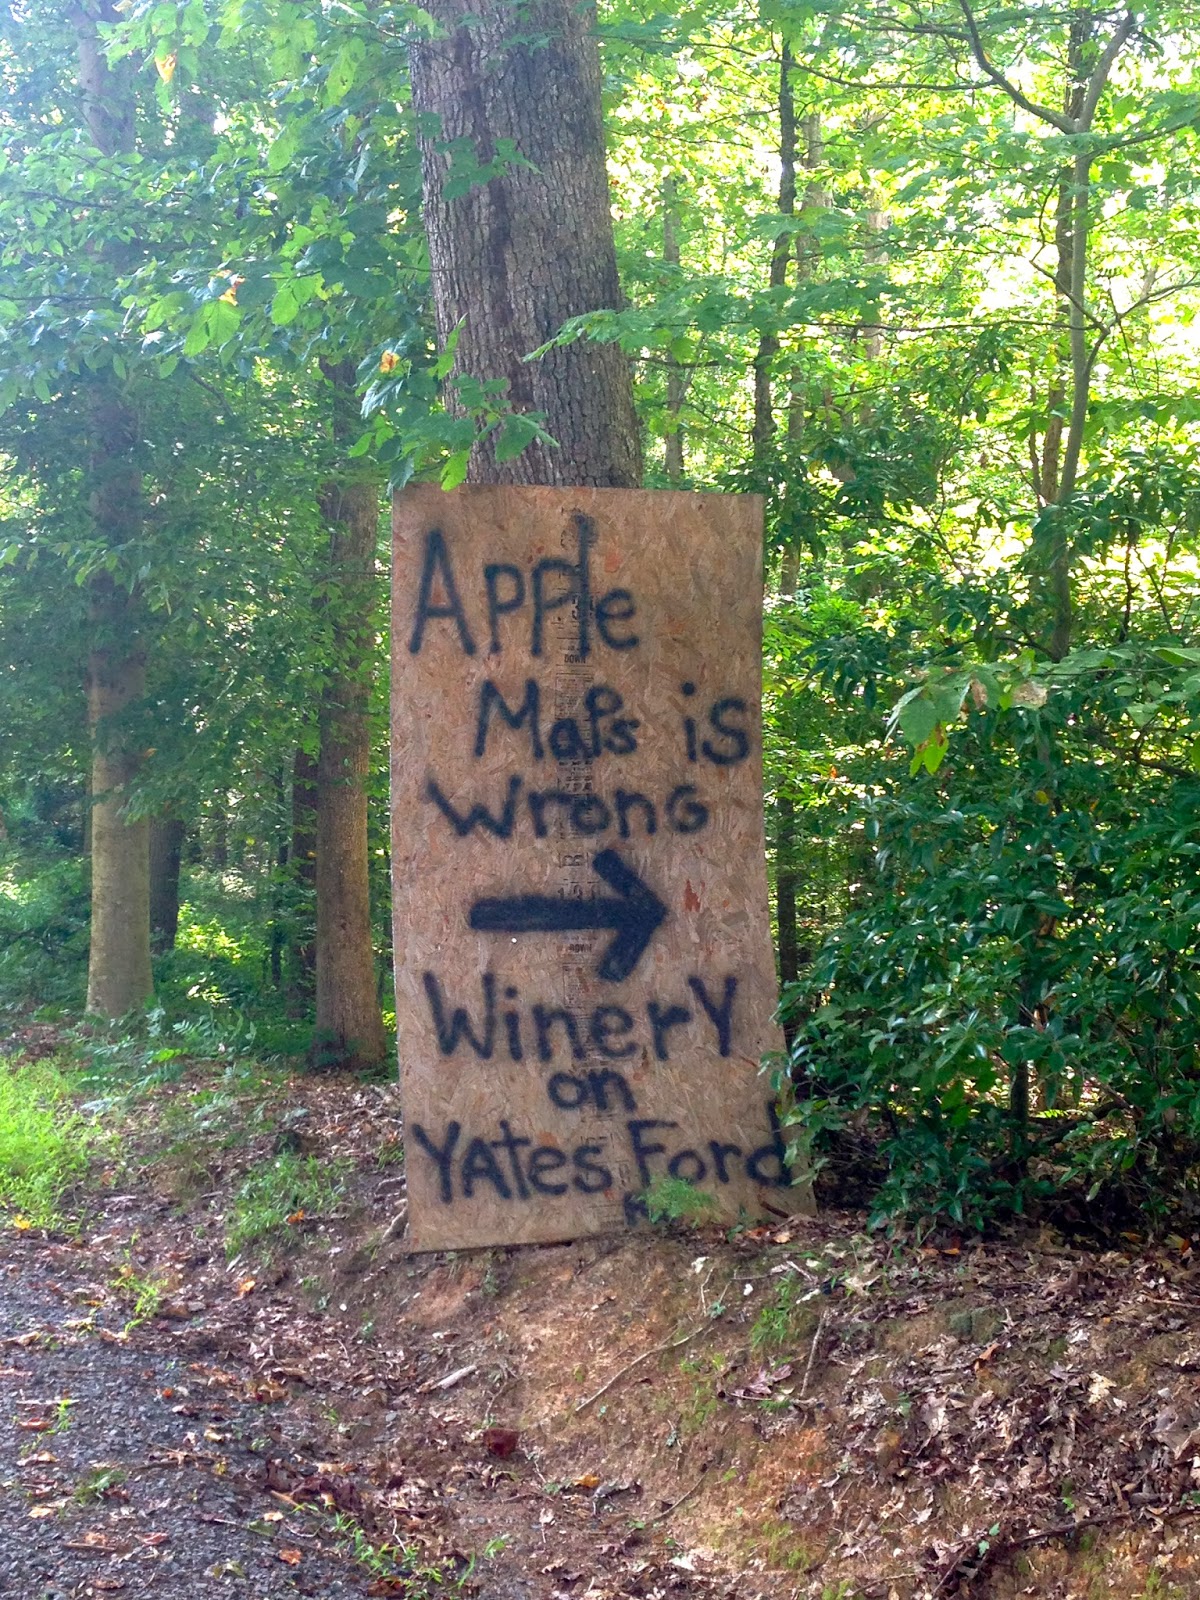 Apple
Maps is
Wrong
Winery
on
Yates Ford
DOWN
DOWN